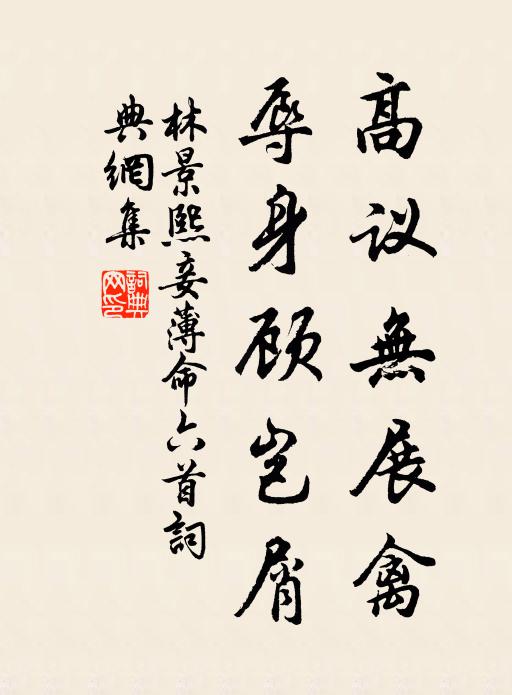 高议無展禽
辱身顾岂屑
林景熙妾薄命六首詞
典網集
詞典網印